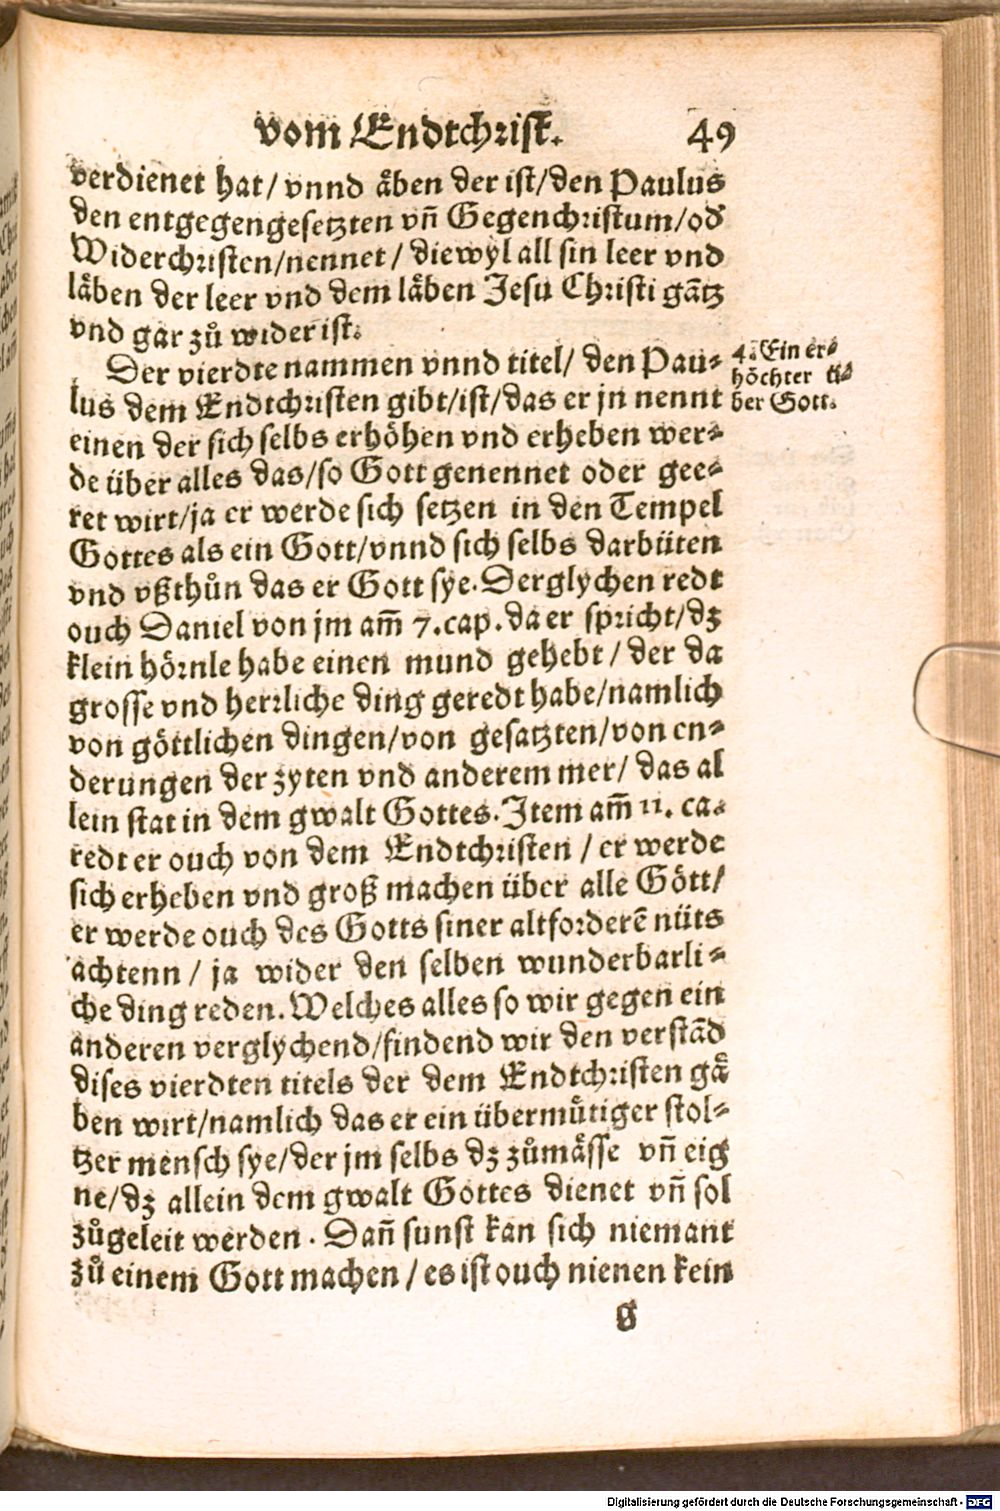 vom Endtchrist. 49
verdienet hat/ vnnd aͤben der ist/den Paulus
den entgegengesetzten vñ Gegenchristum/od'
Widerchristen/nennet/ diewyl all sin leer vnd
laͤben der leer vnd dem laͤben Jesu Christi gātz
vnd gar zů wider ist.
Der vierdte nammen vnnd titel/ den Pau-
lus dem Endtchristen gibt/ist/das er jn nennt
einen der sich selbs erhöhen vnd erheben wer-
de über alles das/so Gott genennet oder gee-
ret wirt/ja er werde sich setzen in den Tempel
Gottes als ein Gott/vnnd sich selbs darbüten
vnd vßthůn das er Gott sye. Derglychen redt
ouch Daniel von jm am̃ 7.cap. da er spricht/dz
klein hörnle habe einen mund gehebt/ der da
grosse vnd herrliche ding geredt habe/namlich
von göttlichen dingen/von gesatzten/von en-
derungen der zyten vnd anderem mer/ das al
lein stat in dem gwalt Gottes. Item am̃ 11. ca.
redt er ouch von dem Endtchristen / er werde
sich erheben vnd groß machen über alle Gött/
er werde ouch des Gotts siner altforderē nüts
achtenn / ja wider den selben wunderbarli-
che ding reden. Welches alles so wir gegen ein
anderen verglychend/findend wir den verstād
dises vierdten titels der dem Endtchristen gaͤ
ben wirt/namlich das er ein übermuͤtiger stol-
tzer mensch sye/der jm selbs dz zůmaͤsse vñ eig
ne/dz allein dem gwalt Gottes dienet vñ sol
zůgeleit werden. Dañ sunst kan sich niemant
zů einem Gott machen / es ist ouch nienen kein
G
4. Ein er-
höchter ü-
ber Gott.
Digitalisierung gefördert durch die Deutsche Forschungsgemeinschaft - DFG